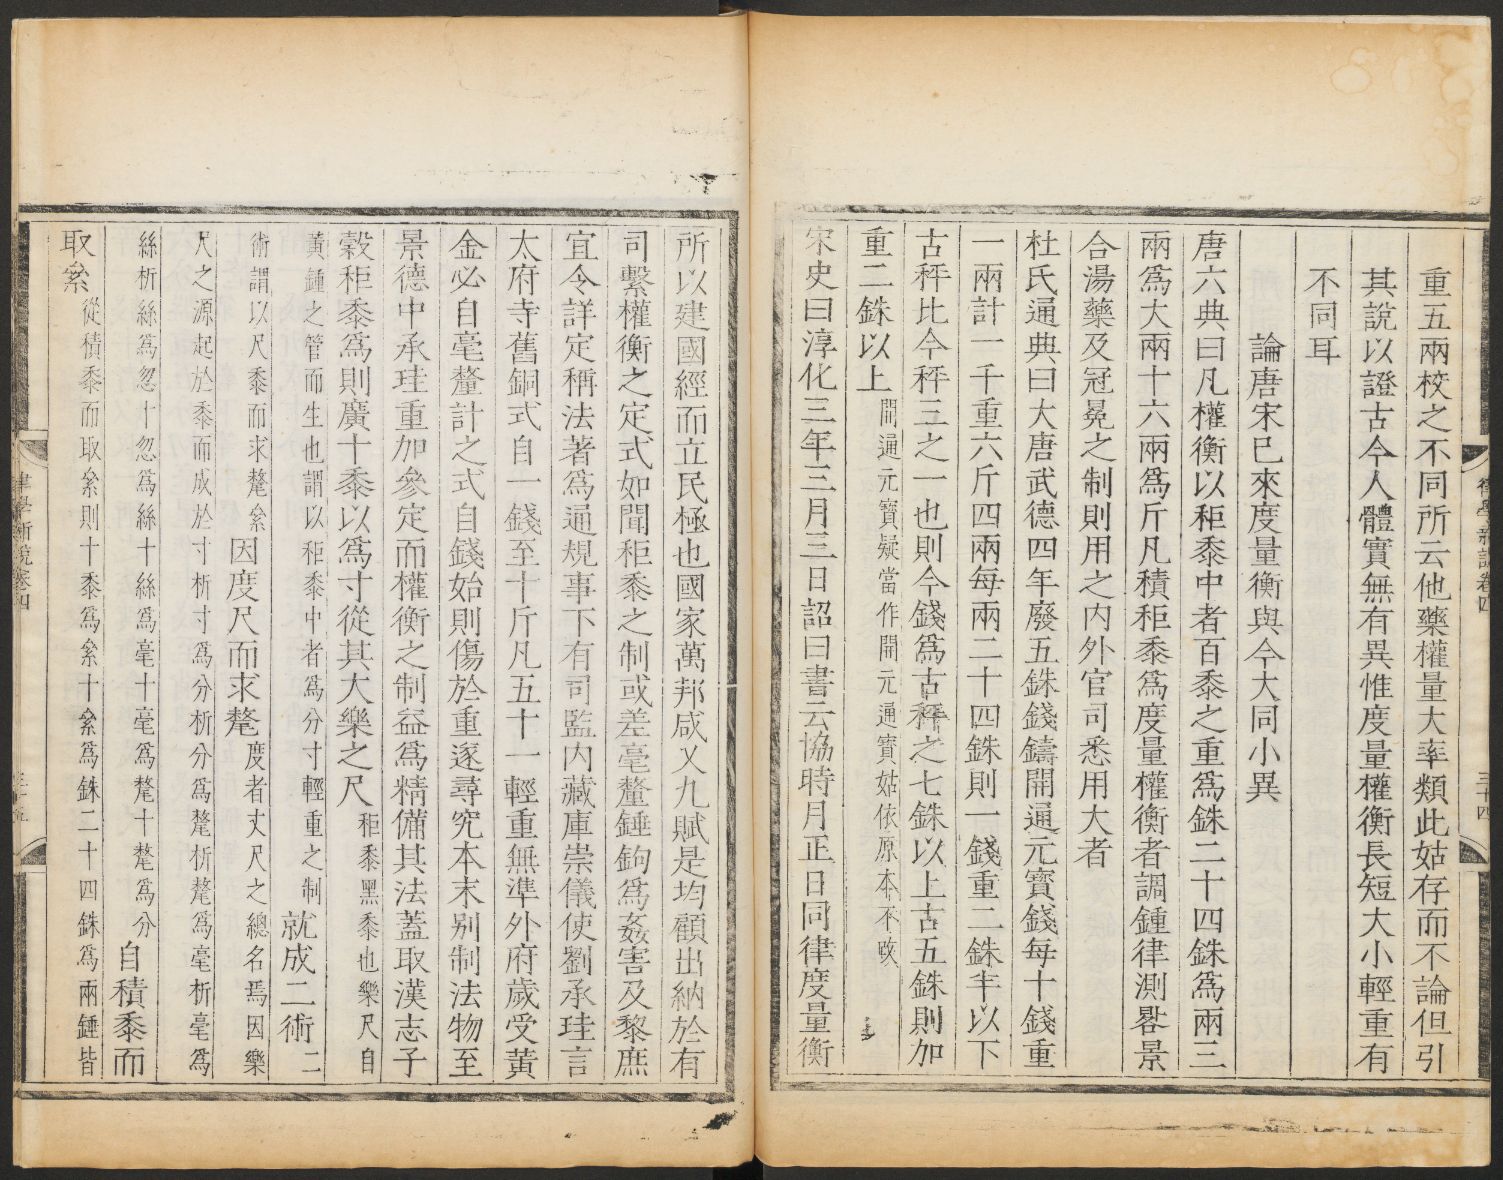 重五兩校之不同所云他藥權量大率類此姑存而不論但引
其說以證古今人體實無有異惟度量權衡長短大小輕重有
不同耳
論唐宋已來度量衡與今大同小異
唐六典曰凡權衡以秬黍中者百黍之重爲銖二十四銖爲兩三
兩爲大兩十六兩爲斤凡積秬黍爲度量權衡者調鍾律測晷景
合湯藥及冠冕之制則用之内外官司悉用大者
杜氏通典曰大唐武德四年廢五銖錢鑄開通元寶錢每十錢重
一兩計一千重六斤四兩每兩二十四銖則一錢重二銖半以下
古秤比今秤三之一也則今錢爲古秤之七銖以上古五銖則加
重二銖以上開通元寶疑當作開元通寶姑依原本不改
宋史曰淳化三年三月三日詔曰書云協時月正日同律度量衡
律學新說卷四
三十四
所以建國經而立民極也國家萬邦咸乂九賦是均顧出納於有
司繫權衡之定式如聞秬黍之制或差毫釐錘鉤爲姦害及黎庶
宜令詳定稱法著爲通規事下有司監内藏庫崇儀使劉承珪言
太府寺舊銅式自一錢至十斤凡五十一輕重無準外府歲受黃
金必自毫釐計之式自錢始則傷於重遂尋究本末别制法物至
景德中承珪重加參定而權衡之制益爲精備其法蓋取漢志子
穀秬黍爲則廣十黍以爲寸從其大樂之尺秬黍黑黍也樂尺自
黃鍾之管而生也謂以秬黍中者爲分寸輕重之制就成二術二
術謂以尺黍而求氂絫因度尺而求氂度者丈尺之總名焉因樂
尺之源起於黍而成於寸析寸爲分析分爲氂析氂爲毫析毫爲
絲析絲爲忽十忽爲絲十絲爲毫十毫爲氂十氂爲分自積黍而
取絫從積黍而取絫則十黍爲絫十絫爲銖二十四銖爲兩錘皆
律學新說卷四
三十五